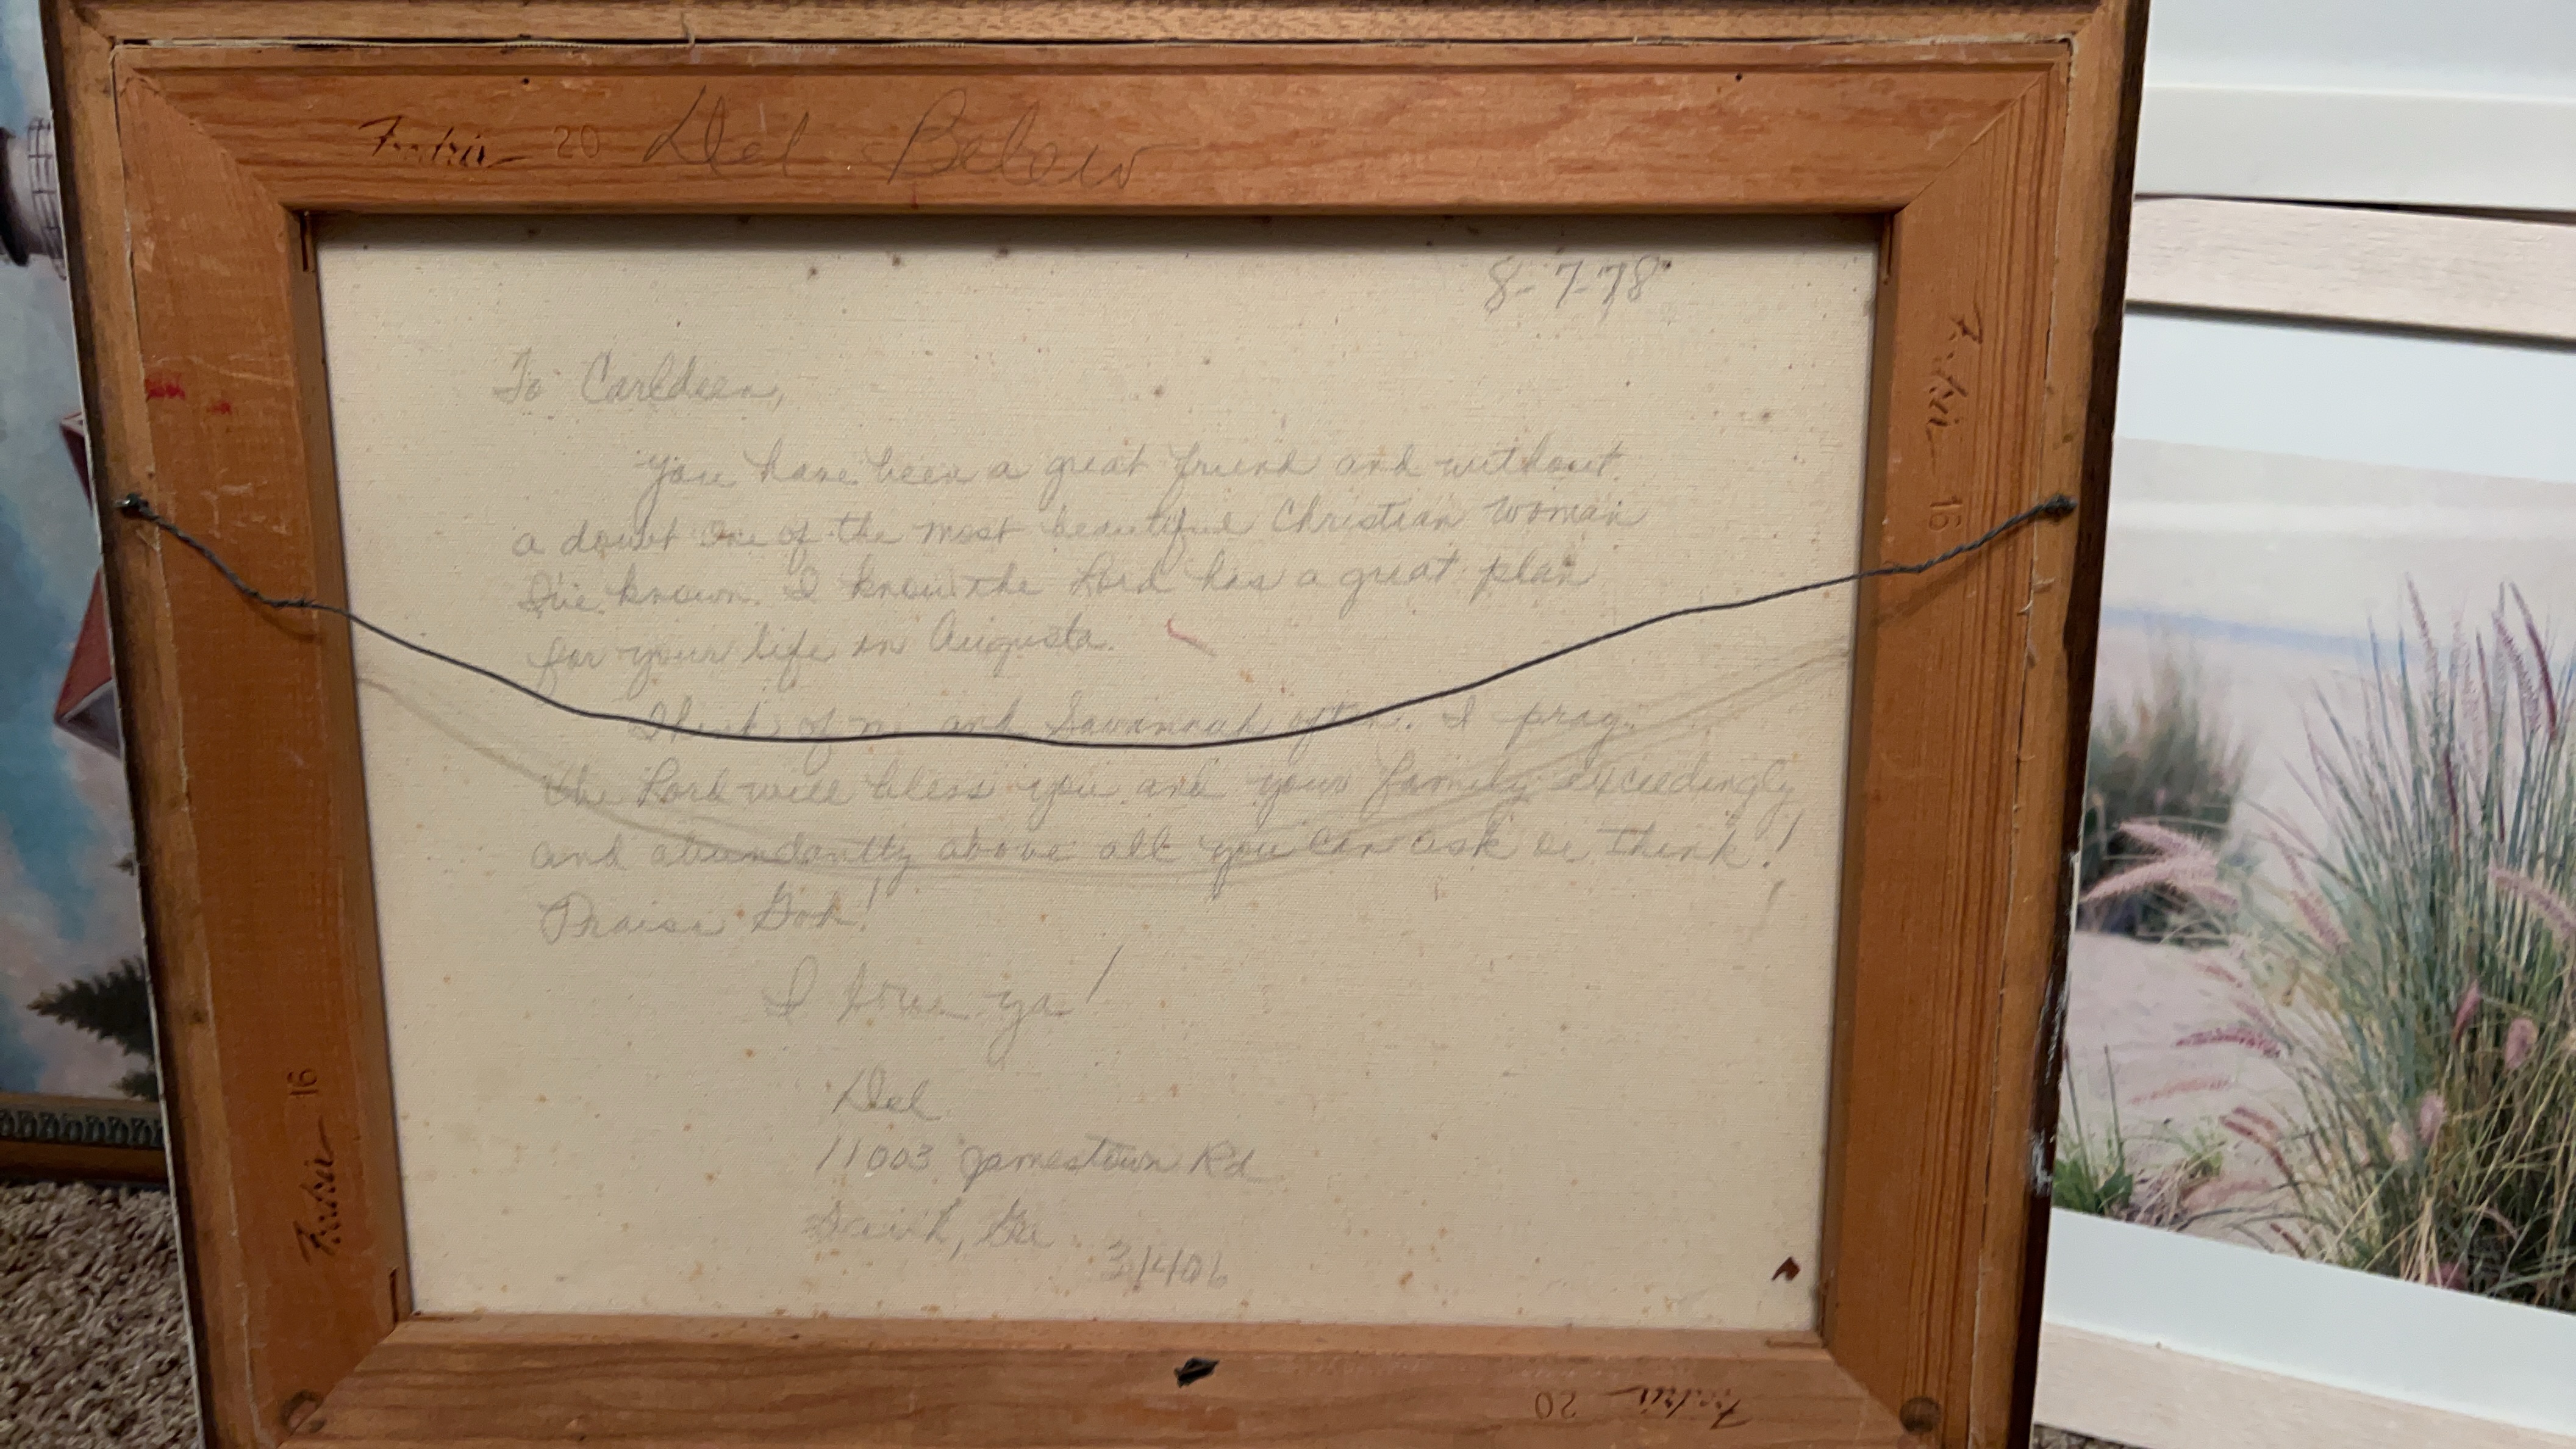 Fredrix 20 Del Below
8-7-78
To Carldeen,
you have been a great friend and without
a doubt one of the most beautiful Christian woman
I've known. I know the Lord has a great plan
for your life in Augusta.
Think of me and Savannah often. I pray
the Lord will bless you and your family exceedingly
and abundantly above all you can ask or think!
Praise God!
I love ya!
Del
11003 Jamestown Rd
Ga.
31406
Fredrix 16
Fredrix 16
Fredrix 20